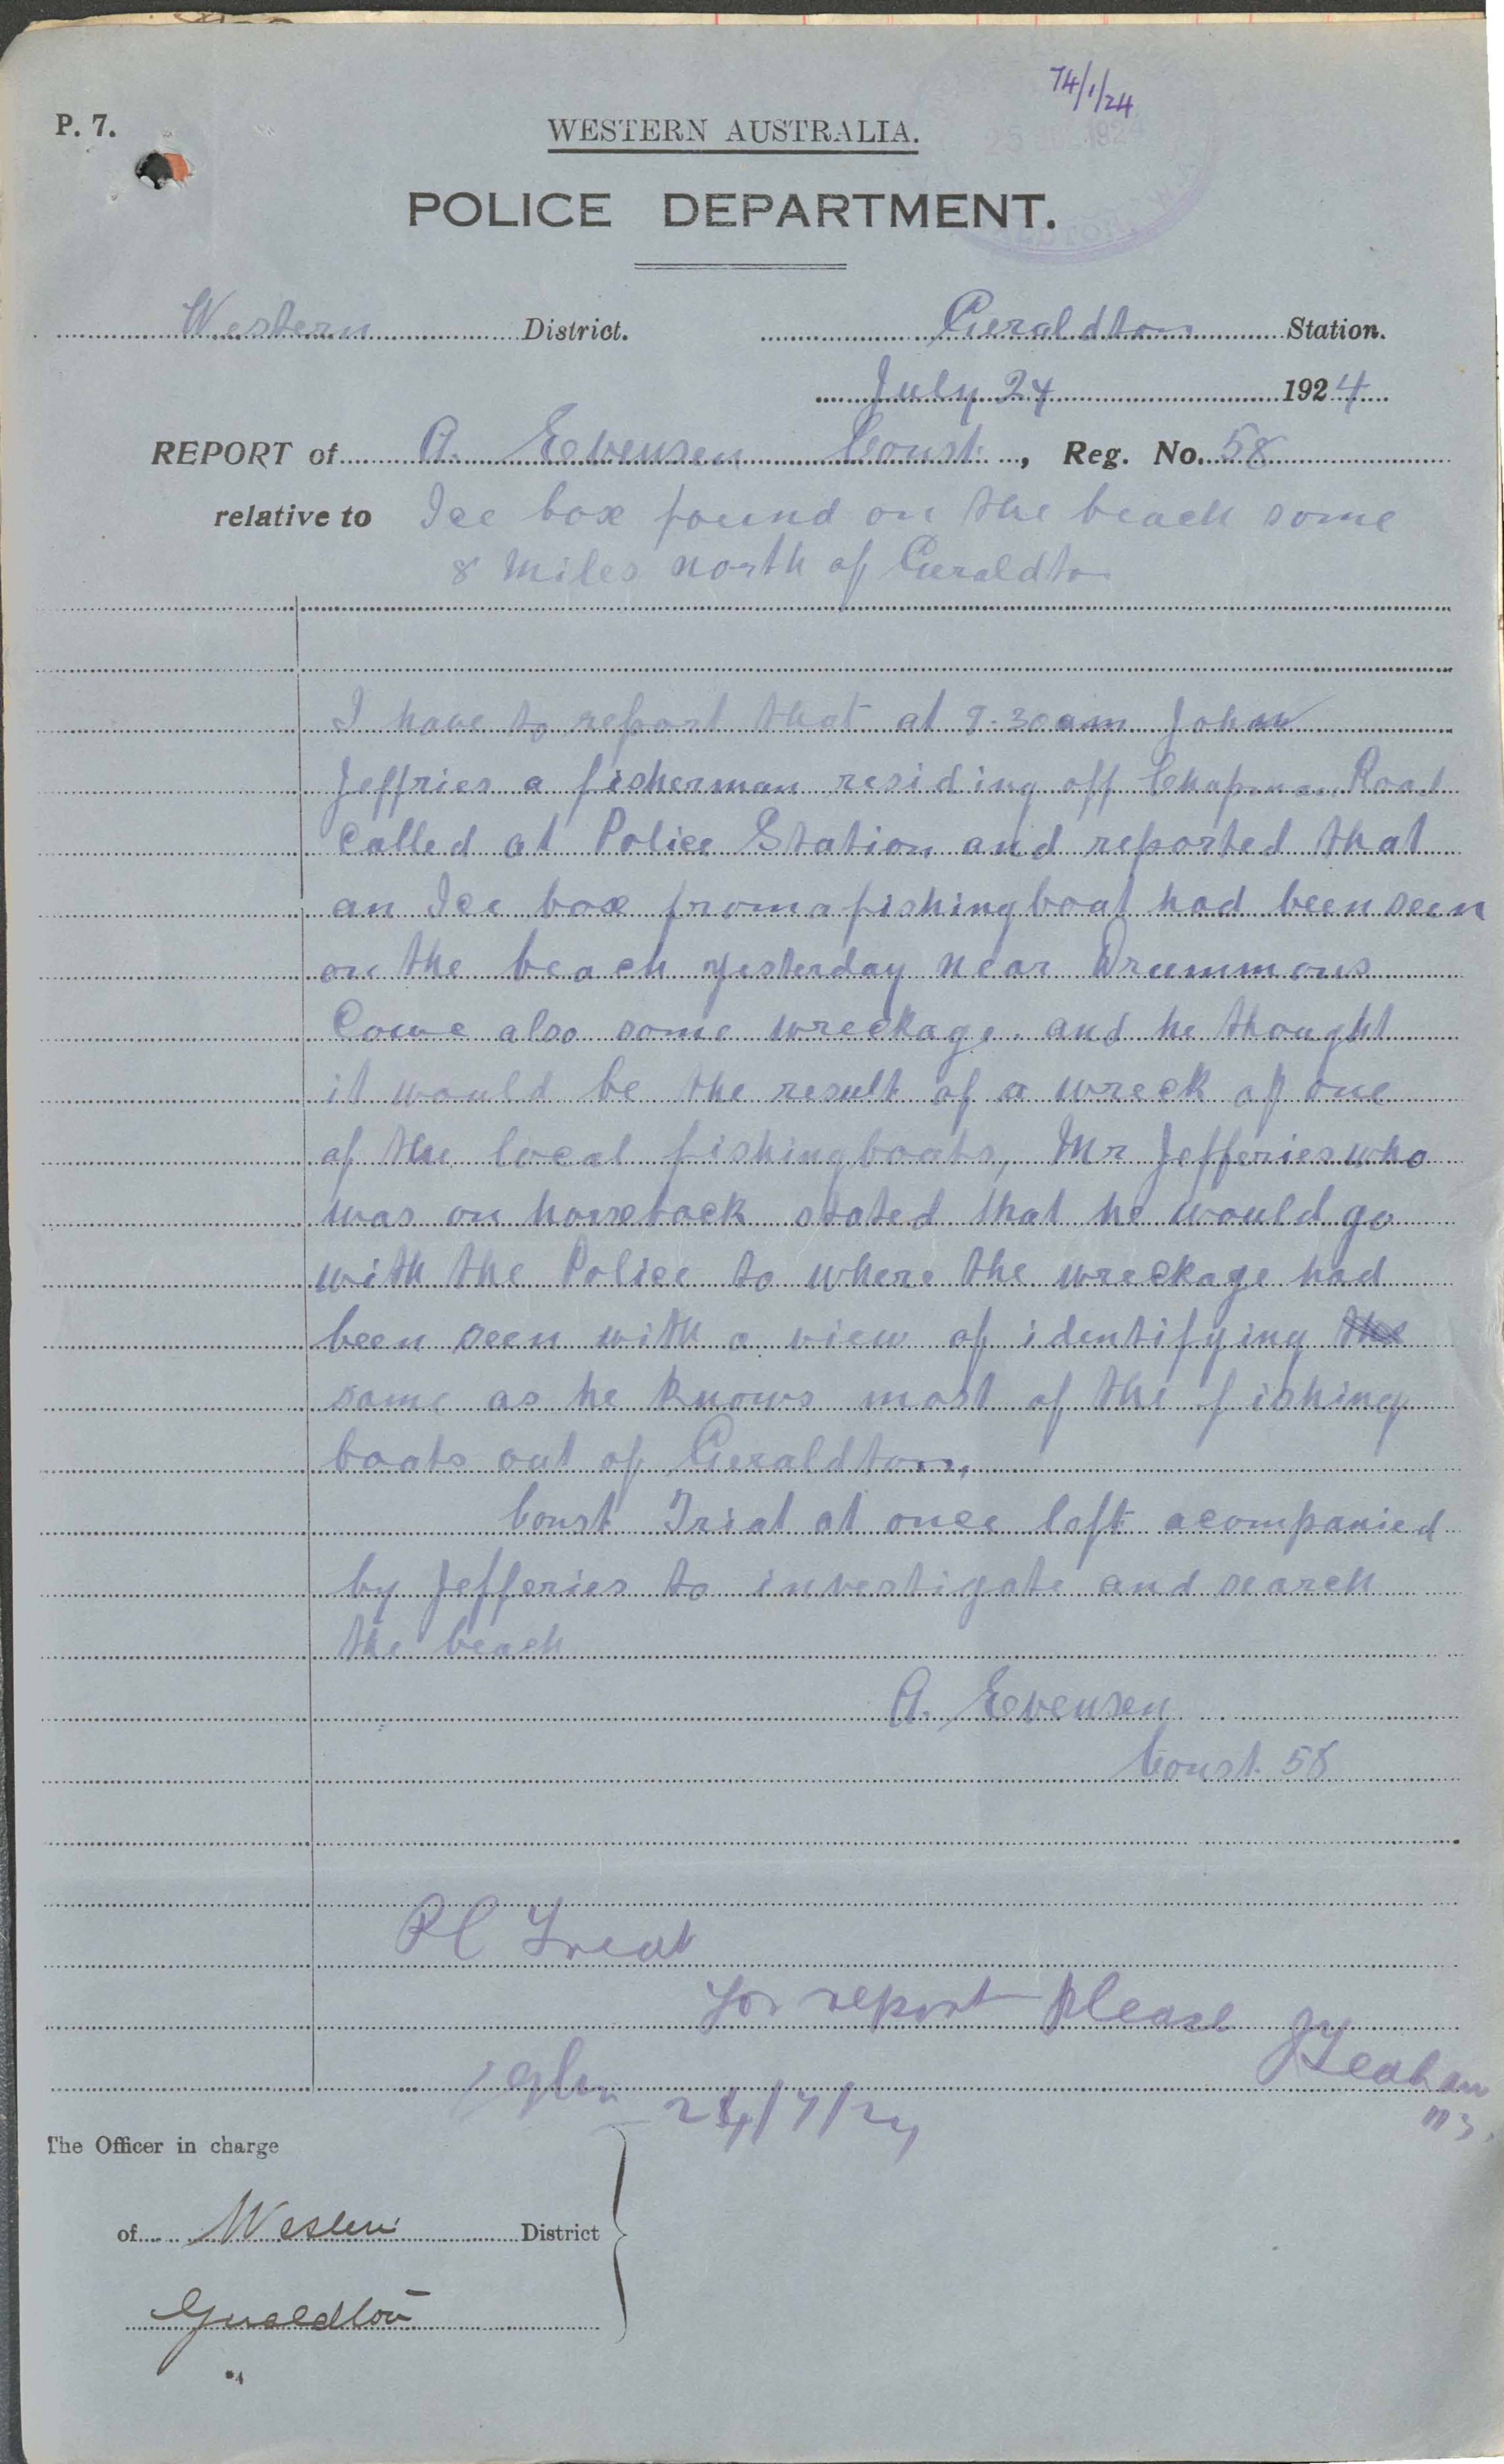 74/1/24
P. 7.
WESTERN AUSTRALIA.
25 1924
POLICE DEPARTMENT.
Western District. Geraldton Station.
July 24 1924
REPORT of A. Evensen Const., Reg. No. 58
relative to Ice box found on the beach some
8 miles north of Geraldton
I have to report that at 9.30am John
Jeffries a fisherman residing off Chapman Road
called at Police Station and reported that
an Ice box from a fishing boat had been seen
on the beach yesterday near Drummons
Cowe also some wreckage. and he thought
it would be the result of a wreck of one
of the local fishing boats, Mr Jefferies who
was on horseback stated that he would go
with the Police to where the wreckage had
been seen with a view of identifying the
same as he knows most of the fishing
boats out of Geraldton,
Const Triat at once left acompanied
by Jefferies to investigate and search
the beach
A. Evensen
Const. 58
PC Treat
For report please
24/7/24
The Officer in charge
of Western District
Geraldton